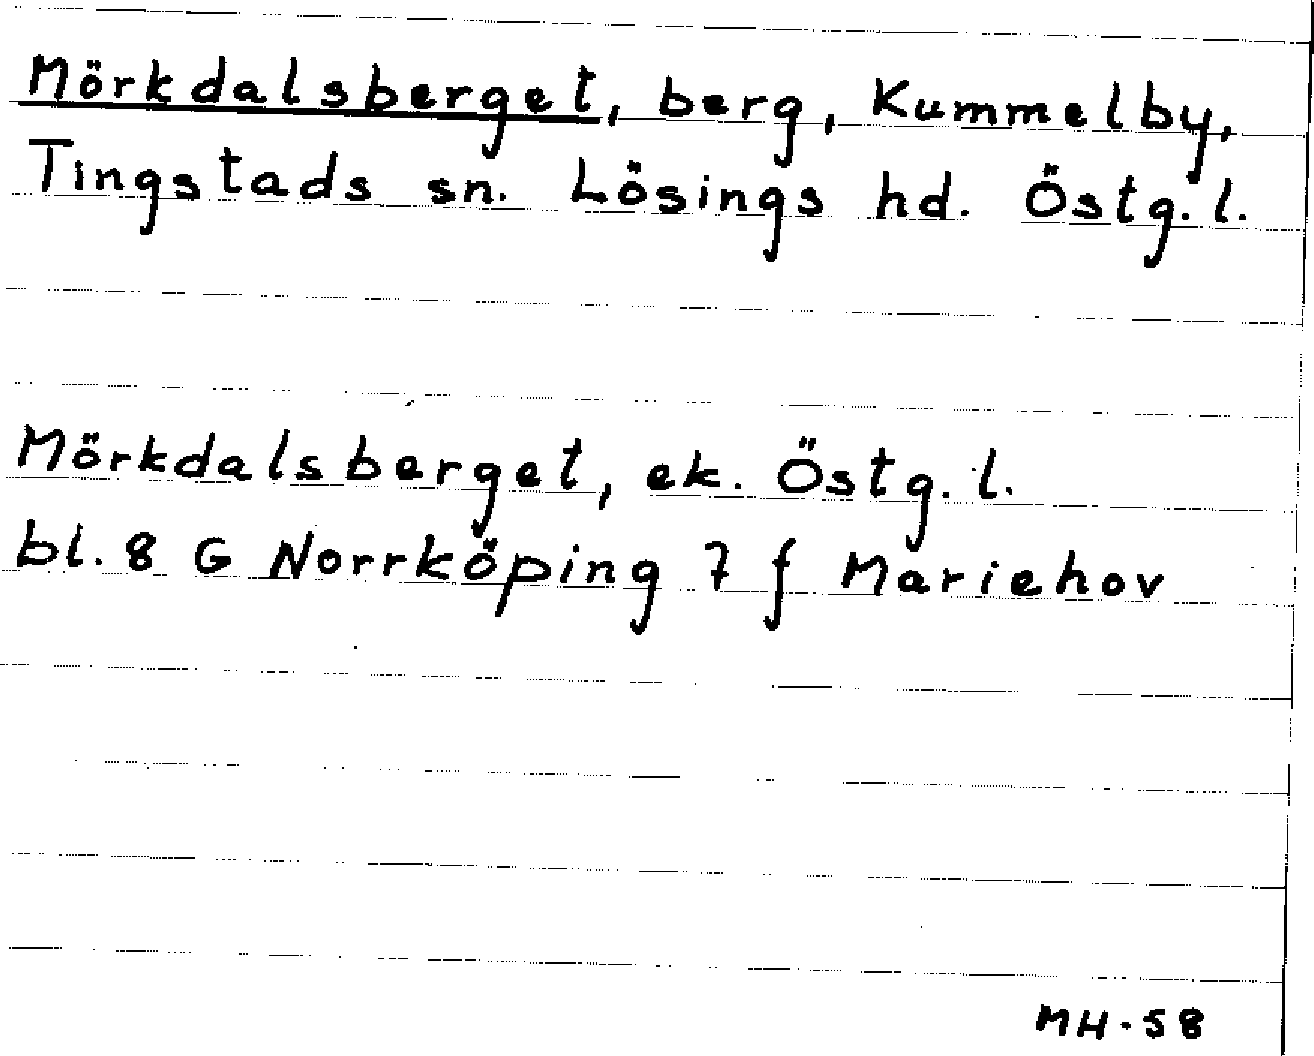 Mörkdalsberget, berg, Kummelby,
Tingstads sn. Lösings hd. Östg. l.
Mörkdalsberget, ek. Östg. l.
bl. 8 G Norrköping 7 f Mariehov
MH-58